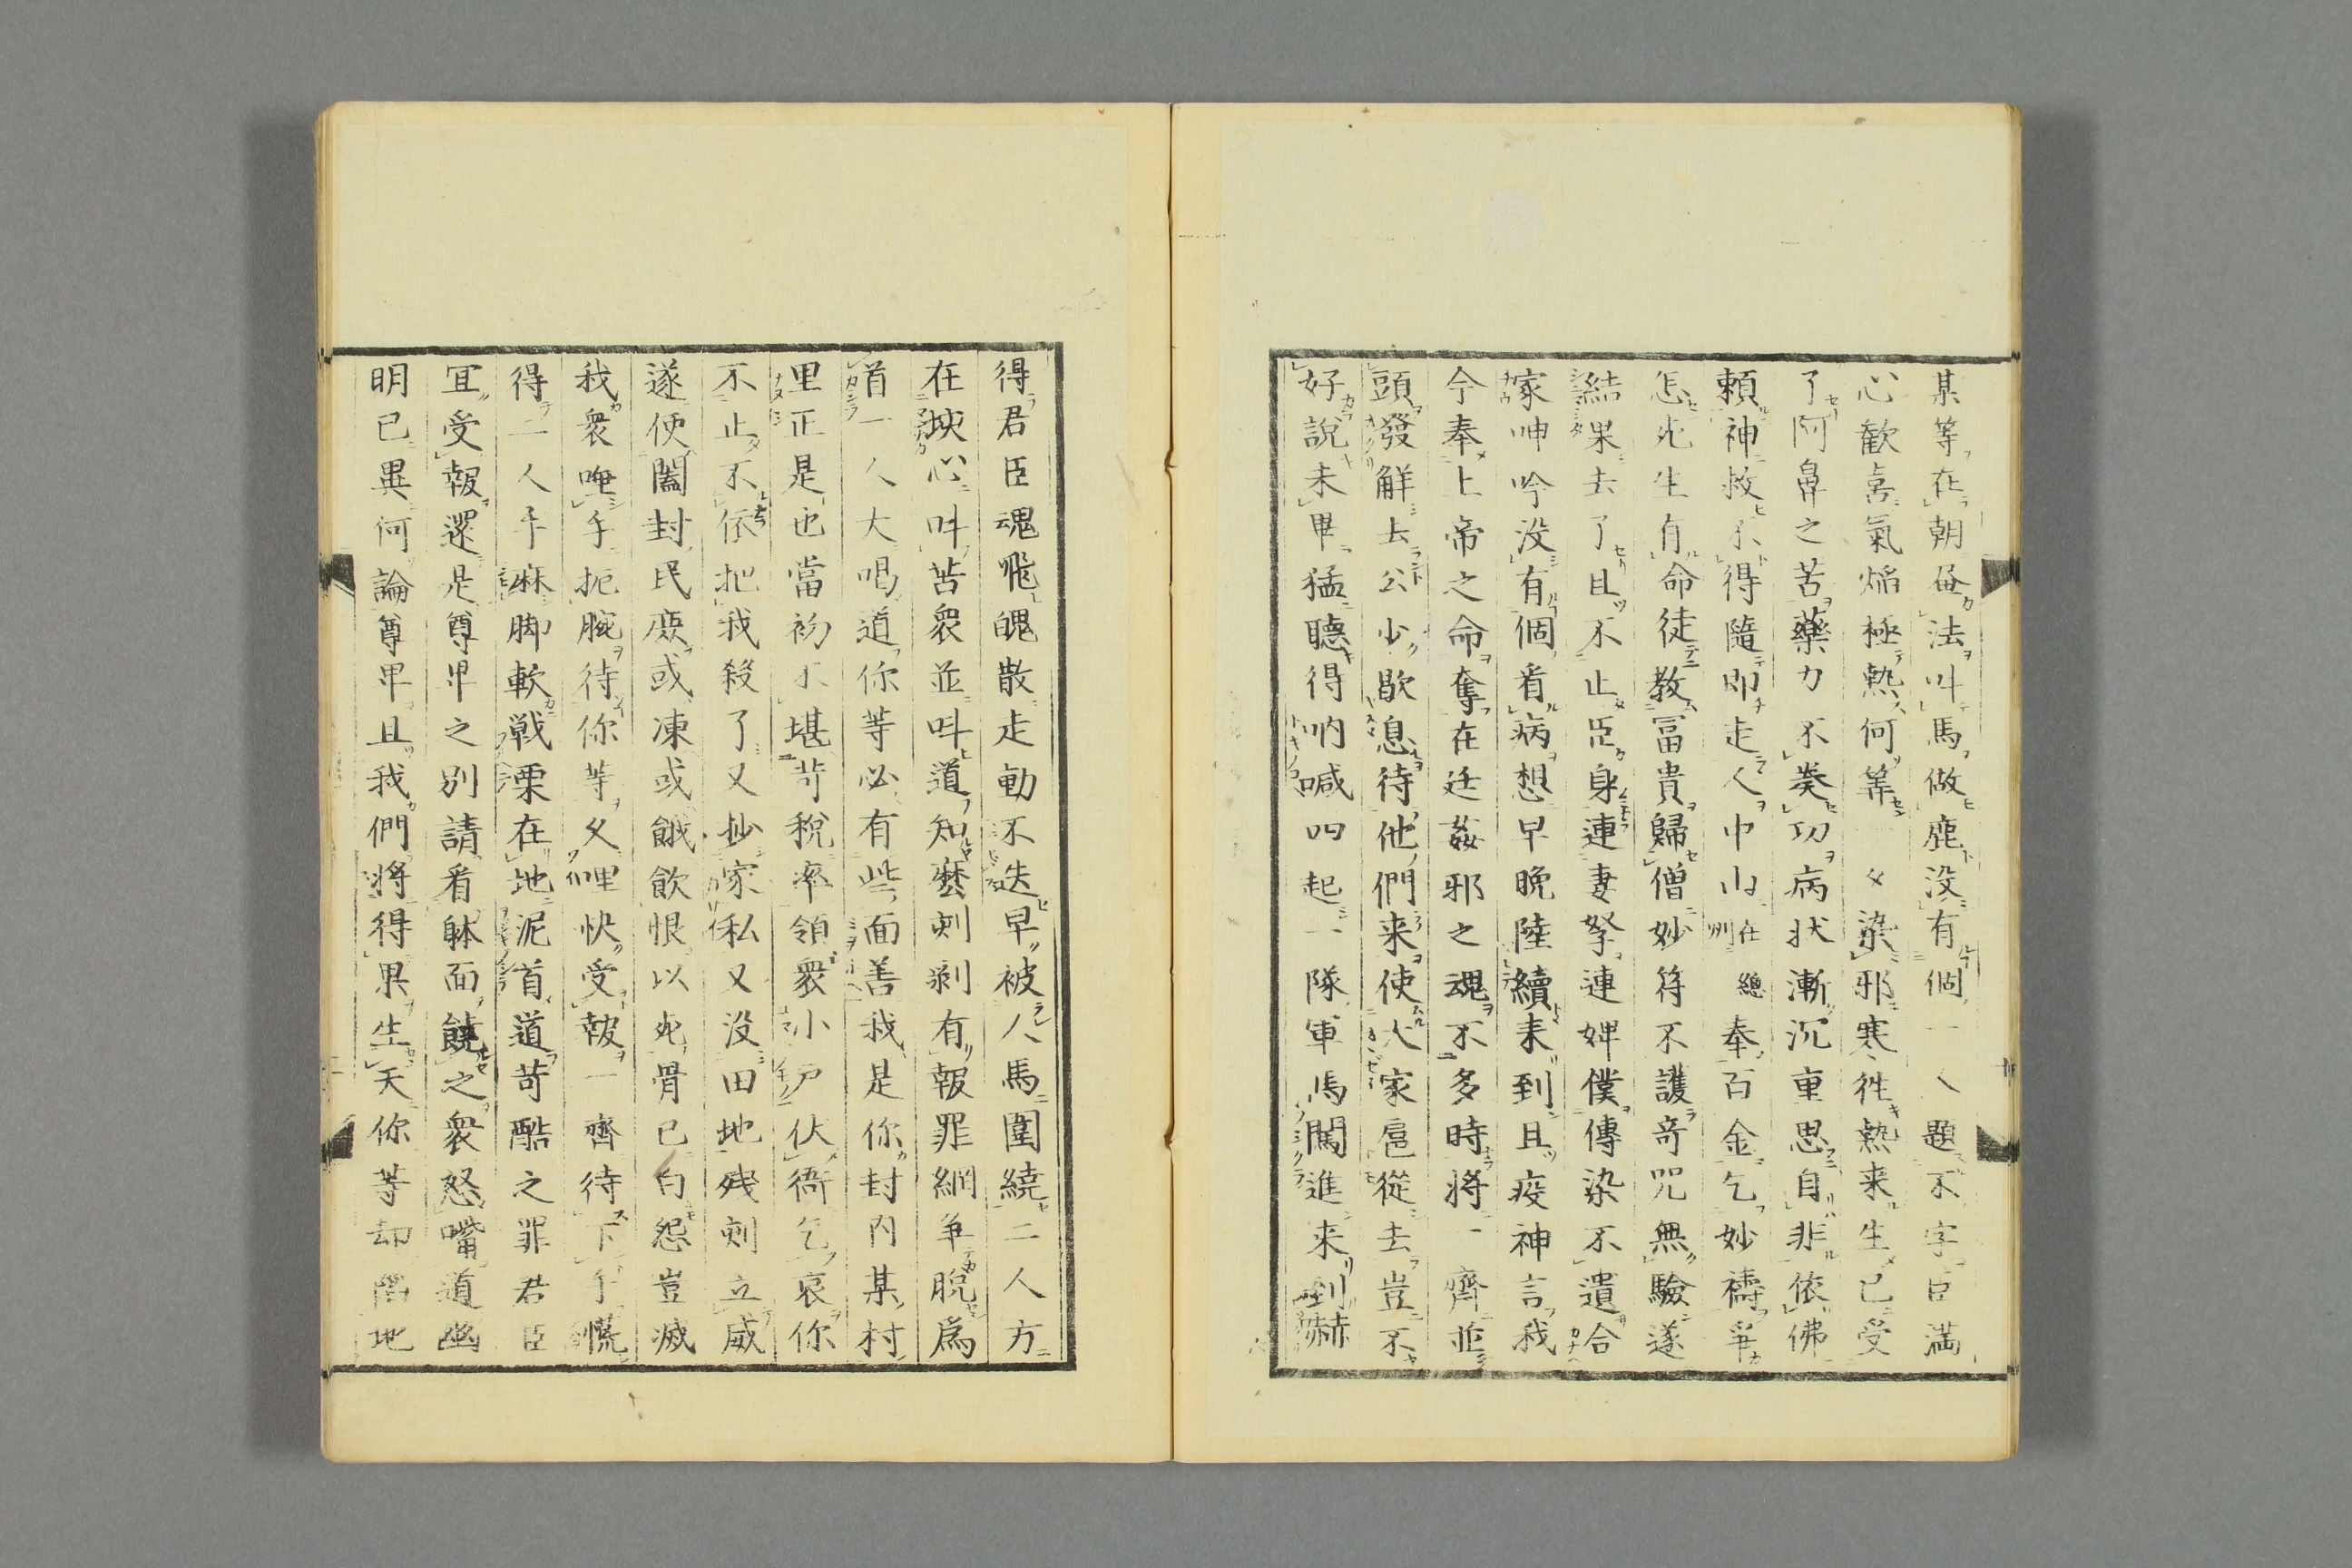 某等在朝毎法叫馬做鹿没有個一人題不字臣満
心歓喜氣焔極熱何等々染邪寒徃熱来生已受
了阿鼻之苦藥力不奏功病状漸沉重思自非依佛
頼神救不得隨即走人中山在総州奉百金乞妙禱争
怎死生有命徒教冨貴歸僧妙符不護奇咒無驗遂
結果去了且不止臣身連妻孥連婢僕傳染不遺合
家呻吟没有個看病想早晩陸續来到且疫神言我
今奉上帝之命奪在廷姦邪之魂不多時將一齊並
頭發觧去公少歇息待他們来使大家扈從去豈不
好説未畢猛聴得吶喊四起一隊軍馬闖進来到赫
得君臣魂飛魄散走動不迭早被人馬圍繞二人方
在埉心叫苦衆並叫道知麼剣剥有報罪網争脱爲
首一人大喝道你等必有些面善我是你封内某村
里正是也當初不堪苛税率領衆小戸伏衙乞哀你
不止不依把我殺了又抄家私又没田地残剣立威
遂使闔封民庶或凍或餓飲恨以死骨已白怨豈滅
我衆唾手扼腕待你等久哩快受報一齊待下手慌
得二人手麻脚軟戦栗在地泥首道苛酷之罪君臣
冝受報還是尊卑之別請看躰面饒之衆怒嘴道幽
明已異何論尊卑且我們將得果生天你等却啚地